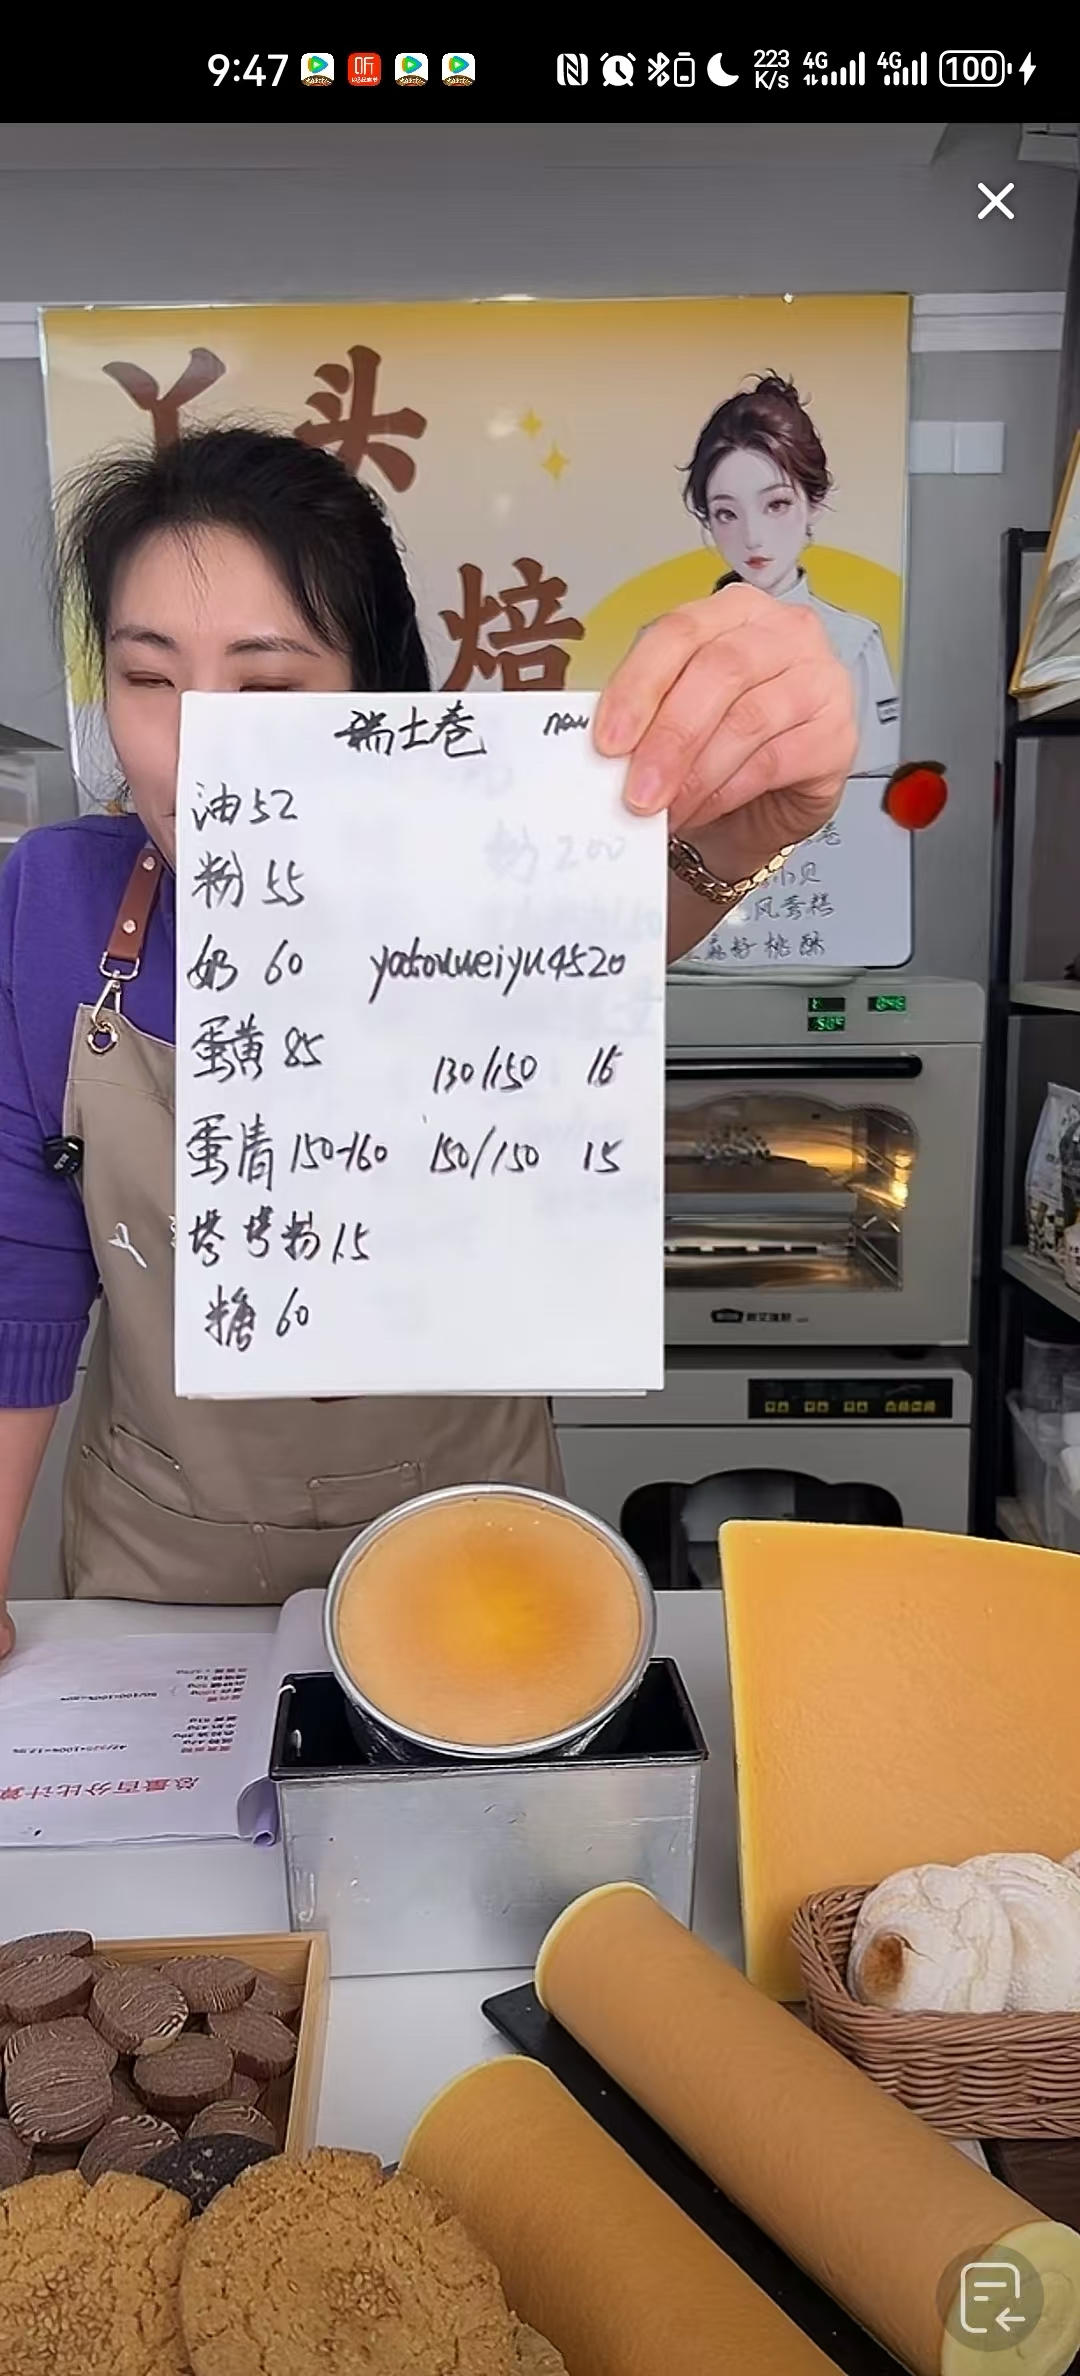 9:47
听
223 K/s
4G
4G
100
丫头
焙
瑞士卷 new
油 52
粉 55
奶 60 yatouweiyu4520
蛋黄 85 130/150 16
蛋清 150-160 150/150 15
塔塔粉 1.5
糖 60
奶 200
小贝
风蛋糕
桃酥
总量百分比计算